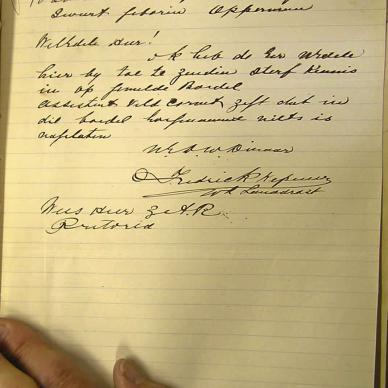 Opperman
WelEdele Heer!
Ik heb de Eer UEdele
hier by toe te zenden Sterf Kennis
in op gemelde Boedel
Assistent Veld Cornet zegt dat in
die boedel niets is
nagelaten
UEd.W.Dienaar
Fredrick
Landdrost
Wees Heer Z.A.R.
Pretoria